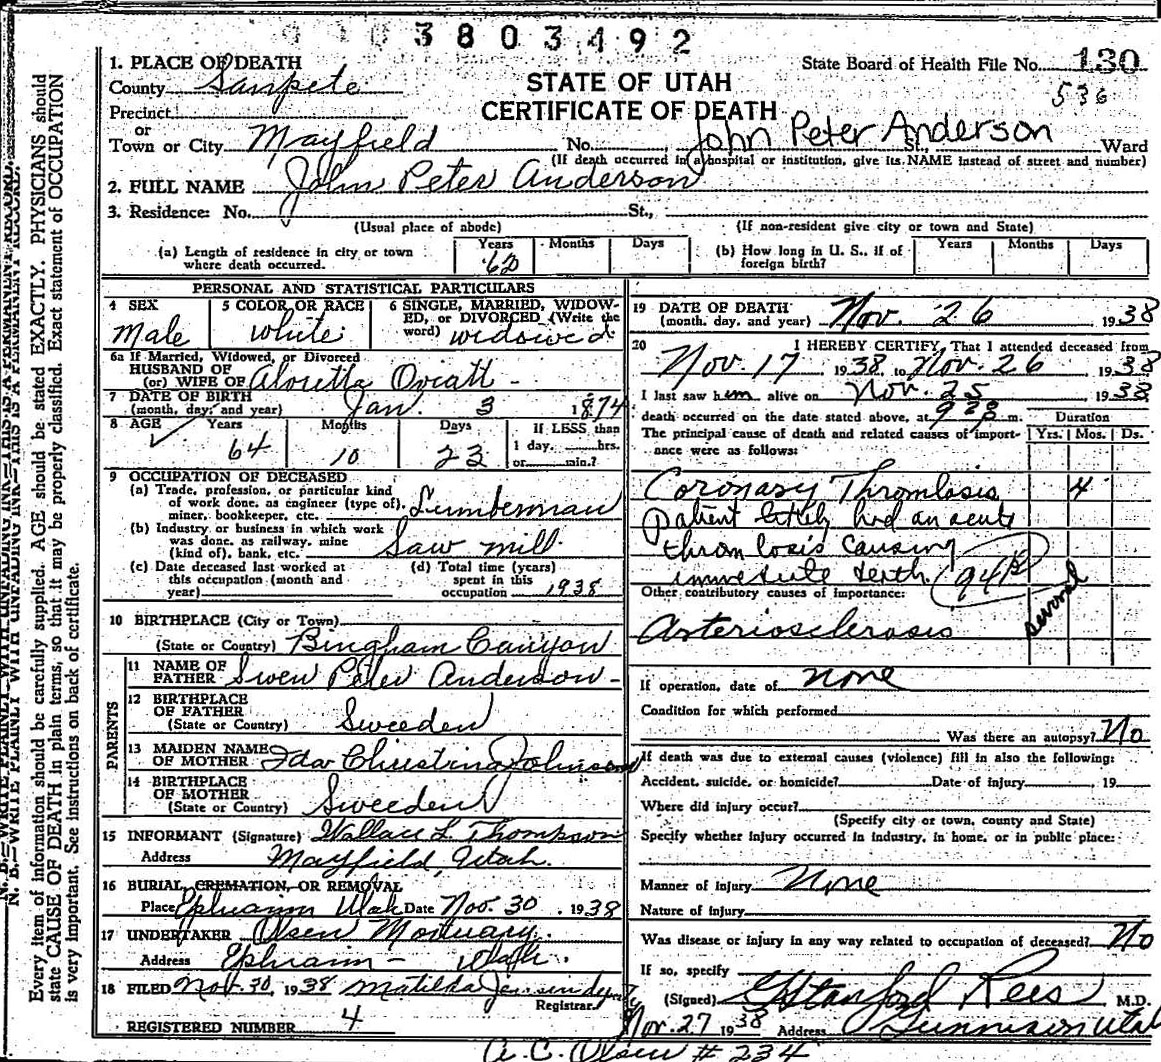 3803492
1. PLACE OF DEATH
County Sanpete
Precinct
or
Town or City Mayfield
STATE OF UTAH
CERTIFICATE OF DEATH
State Board of Health File No. 130
536
No. John Peter Anderson St., Ward
(If death occurred in a hospital or institution, give its NAME instead of street and number)
2. FULL NAME John Peter Anderson
3. Residence: No. St.,
(Usual place of abode) (If non-resident give city or town and State)
(a) Length of residence in city or town where death occurred. Years 62 Months Days
(b) How long in U. S., if of foreign birth? Years Months Days
PERSONAL AND STATISTICAL PARTICULARS
4 SEX Male
5 COLOR OR RACE White
6 SINGLE, MARRIED, WIDOWED, or DIVORCED (Write the word) widowed
6a If Married, Widowed, or Divorced
HUSBAND OF
(or) WIFE OF Aloretta Oviatt -
7 DATE OF BIRTH
(month, day, and year) Jan. 3 1874
8 AGE Years 64 Months 10 Days 23 If LESS than 1 day, hrs. or min.?
9 OCCUPATION OF DECEASED
(a) Trade, profession, or particular kind
of work done, as engineer (type of),
miner, bookkeeper, etc. Lumberman
(b) Industry or business in which work
was done, as railway, mine
(kind of), bank, etc. Saw mill
(c) Date deceased last worked at
this occupation (month and
year)
(d) Total time (years)
spent in this
occupation 1938
10 BIRTHPLACE (City or Town)
(State or Country) Bingham Canyon
PARENTS
11 NAME OF
FATHER Swen Peter Anderson -
12 BIRTHPLACE
OF FATHER
(State or Country) Sweeden
13 MAIDEN NAME
OF MOTHER Ida Christina Johnson
14 BIRTHPLACE
OF MOTHER
(State or Country) Sweeden
15 INFORMANT (Signature) Wallace L Thompson
Address Mayfield, Utah.
16 BURIAL, CREMATION, OR REMOVAL
Place Ephraim Utah Date Nov. 30, 1938
17 UNDERTAKER Olsen Mortuary.
Address Ephraim - Utah.
18 FILED Nov. 30, 1938 Matilda Jensen
Registrar
REGISTERED NUMBER 4
19 DATE OF DEATH
(month, day, and year) Nov. 26 1938
20 I HEREBY CERTIFY, That I attended deceased from
Nov. 17 1938, to Nov. 26, 1938
I last saw him alive on Nov. 25, 1938
death occurred on the date stated above, at m.
Duration
The principal cause of death and related causes of importance were as follows:
Yrs. Mos. Ds.
Coronary Thrombosis 4
patient likely had an acute
thrombosis causing
immediate death. 94B
Other contributory causes of importance:
Arteriosclerosis several
If operation, date of none
Condition for which performed
Was there an autopsy? No
If death was due to external causes (violence) fill in also the following:
Accident, suicide, or homicide? Date of injury , 19
Where did injury occur?
(Specify city or town, county and State)
Specify whether injury occurred in industry, in home, or in public place:
Manner of injury None
Nature of injury
Was disease or injury in any way related to occupation of deceased? No
If so, specify
(Signed) G Stanford Rees M.D.
Nov. 27 1938 Address Gunnison Utah
A. C. Olsen # 234
N. B.—WRITE PLAINLY WITH UNFADING INK—THIS IS A PERMANENT RECORD.
Every item of information should be carefully supplied. AGE should be stated EXACTLY. PHYSICIANS should
state CAUSE OF DEATH in plain terms, so that it may be properly classified. Exact statement of OCCUPATION
is very important. See instructions on back of certificate.